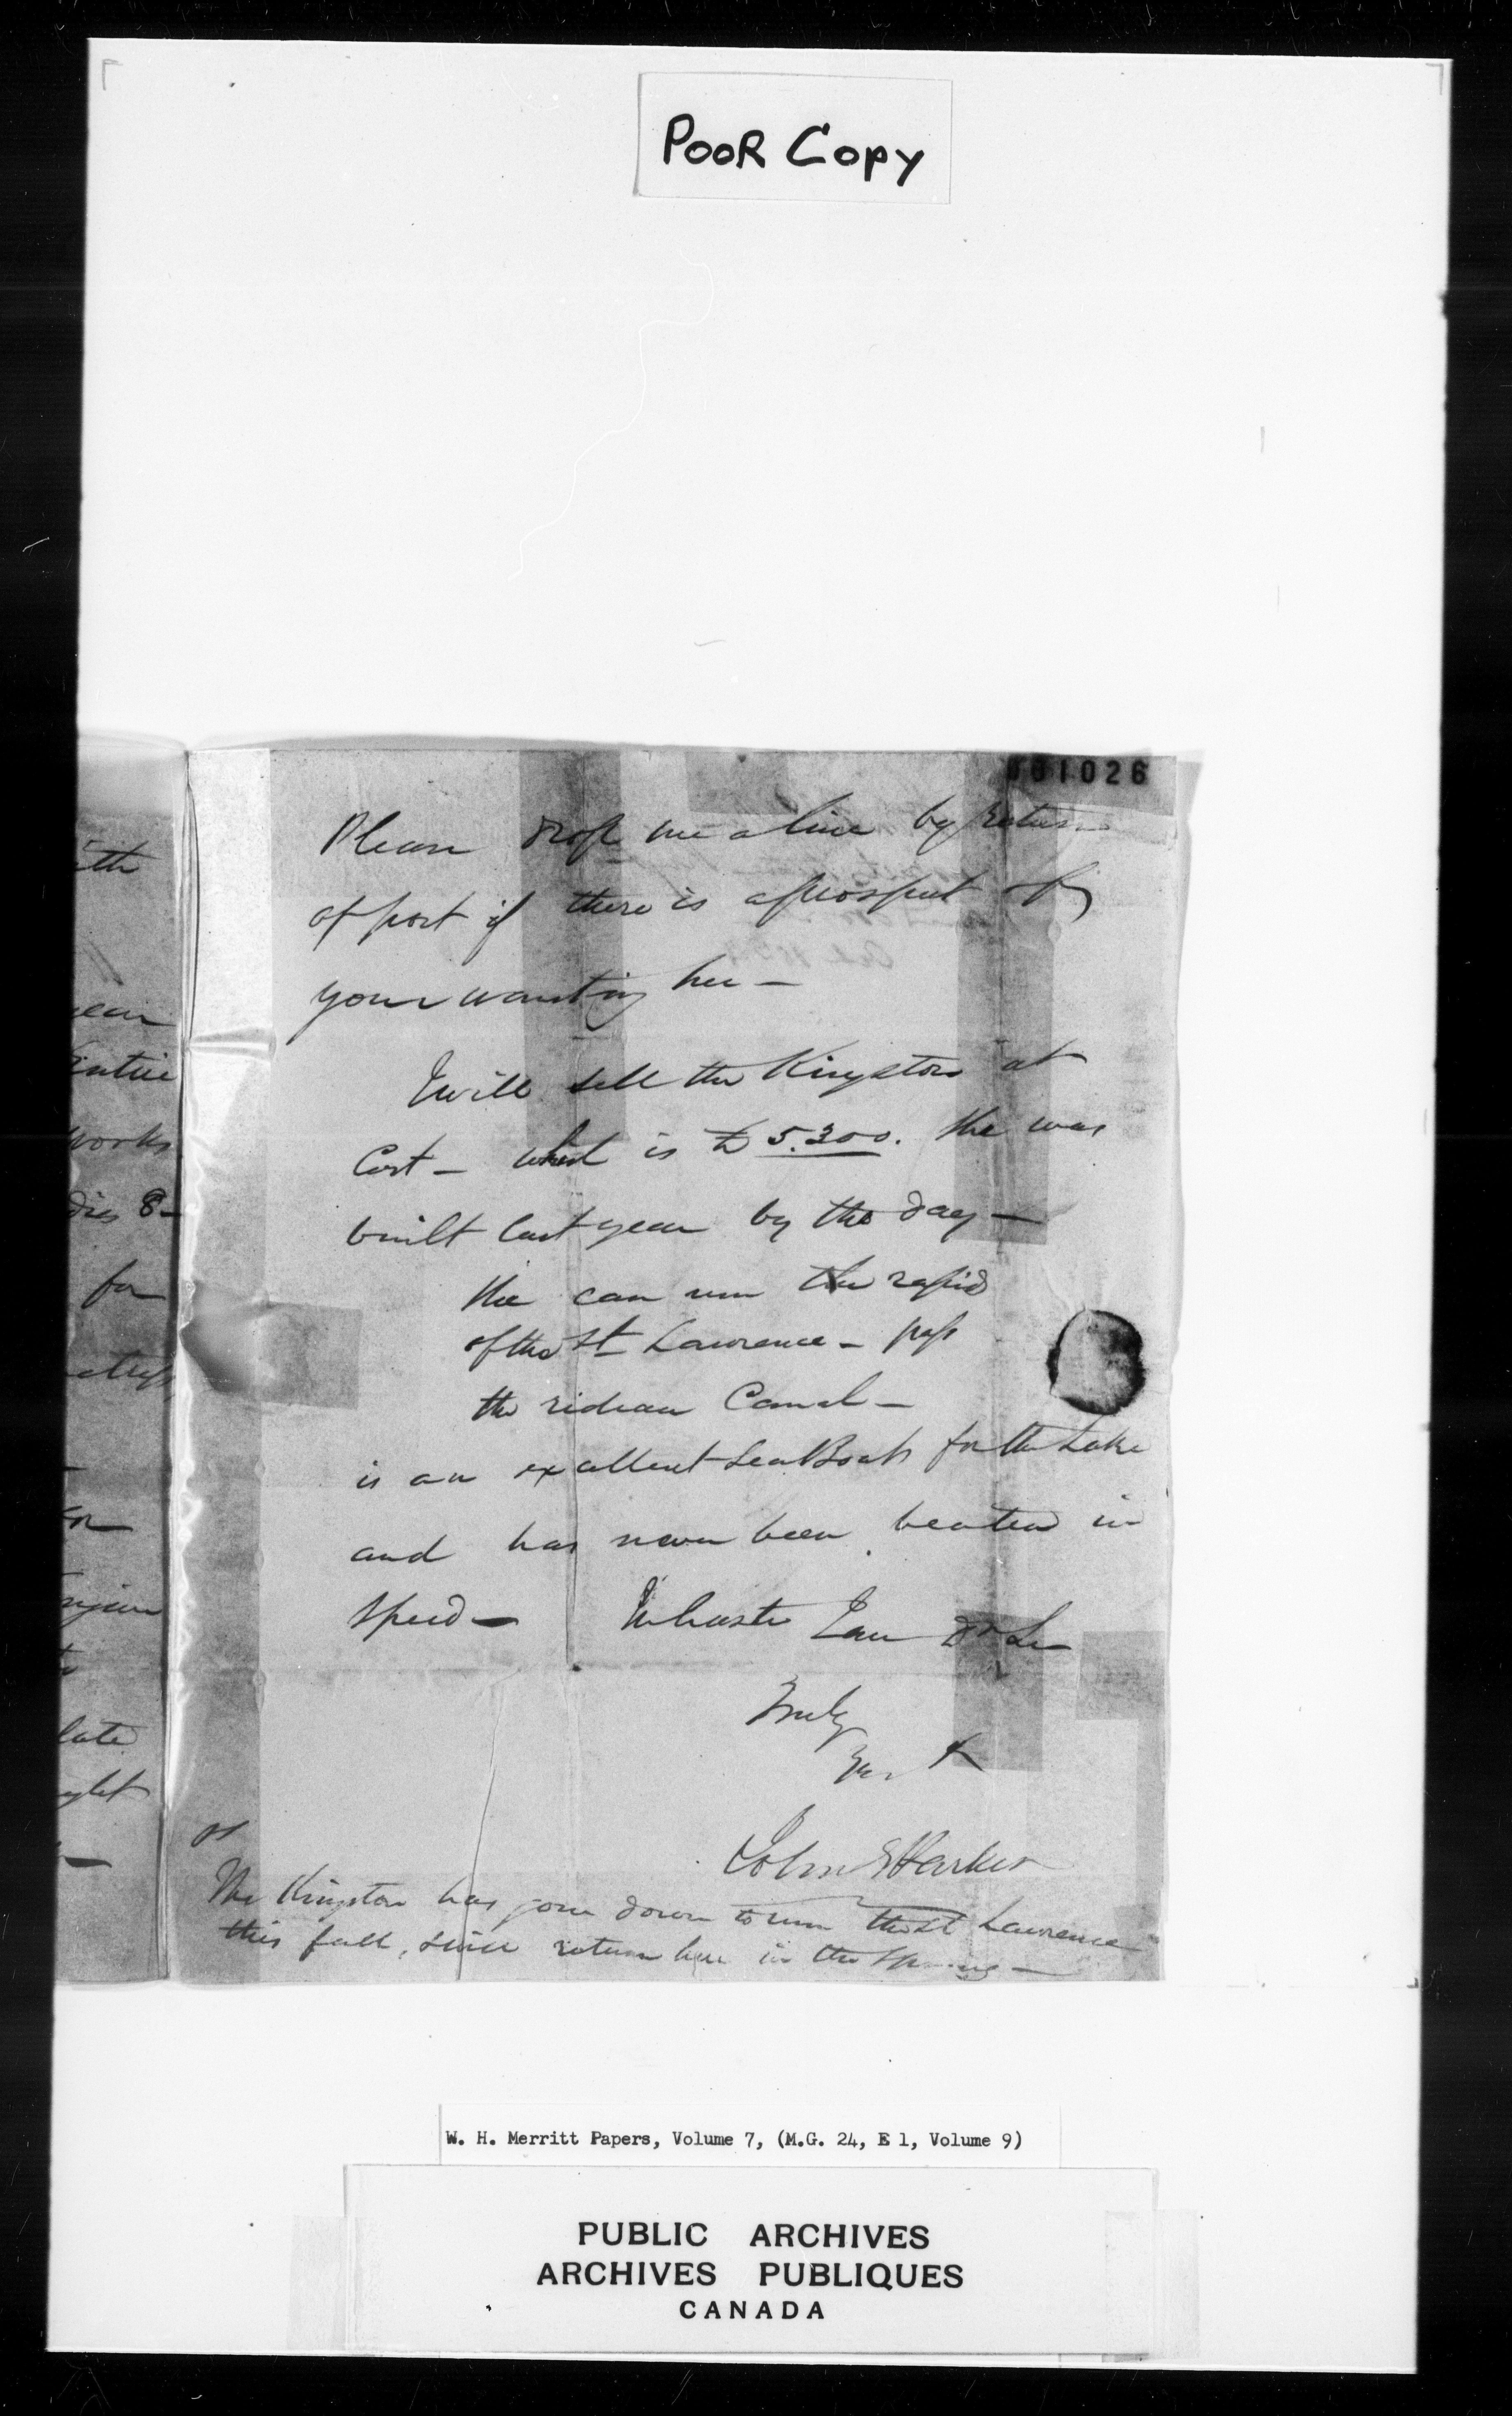 POOR COPY
001026
Please drop me a line by return
of post if there is a prospect of
your wanting her —
I will sell the Kingston at
Cost — which is £ 5.300. She was
built last year by the day —
She can run the rapid
of the St Lawrence — pass
the rideau Canal —
is an excellent Sea Boat for the Lake
and has never been beaten in
Speed — In haste I am Dr Sir
Truly
Yours
John S Parker
PS
The Kingston has gone down to run the St Lawrence
this fall, & will return here in the Spring —
ith
year
entire
works
dies 8 —
for
for
to
late
W. H. Merritt Papers, Volume 7, (M.G. 24, E 1, Volume 9)
PUBLIC ARCHIVES
ARCHIVES PUBLIQUES
CANADA